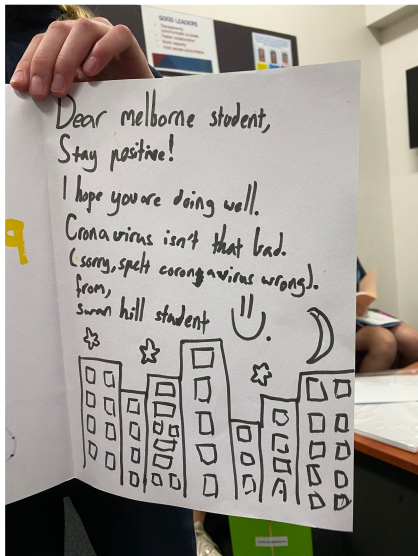 GOOD LEADERS
Dear melborne student,
Stay positive!
I hope you are doing well.
Cronavirus isn't that bad.
(sorry, spelt coronavirus wrong).
from,
swan hill student